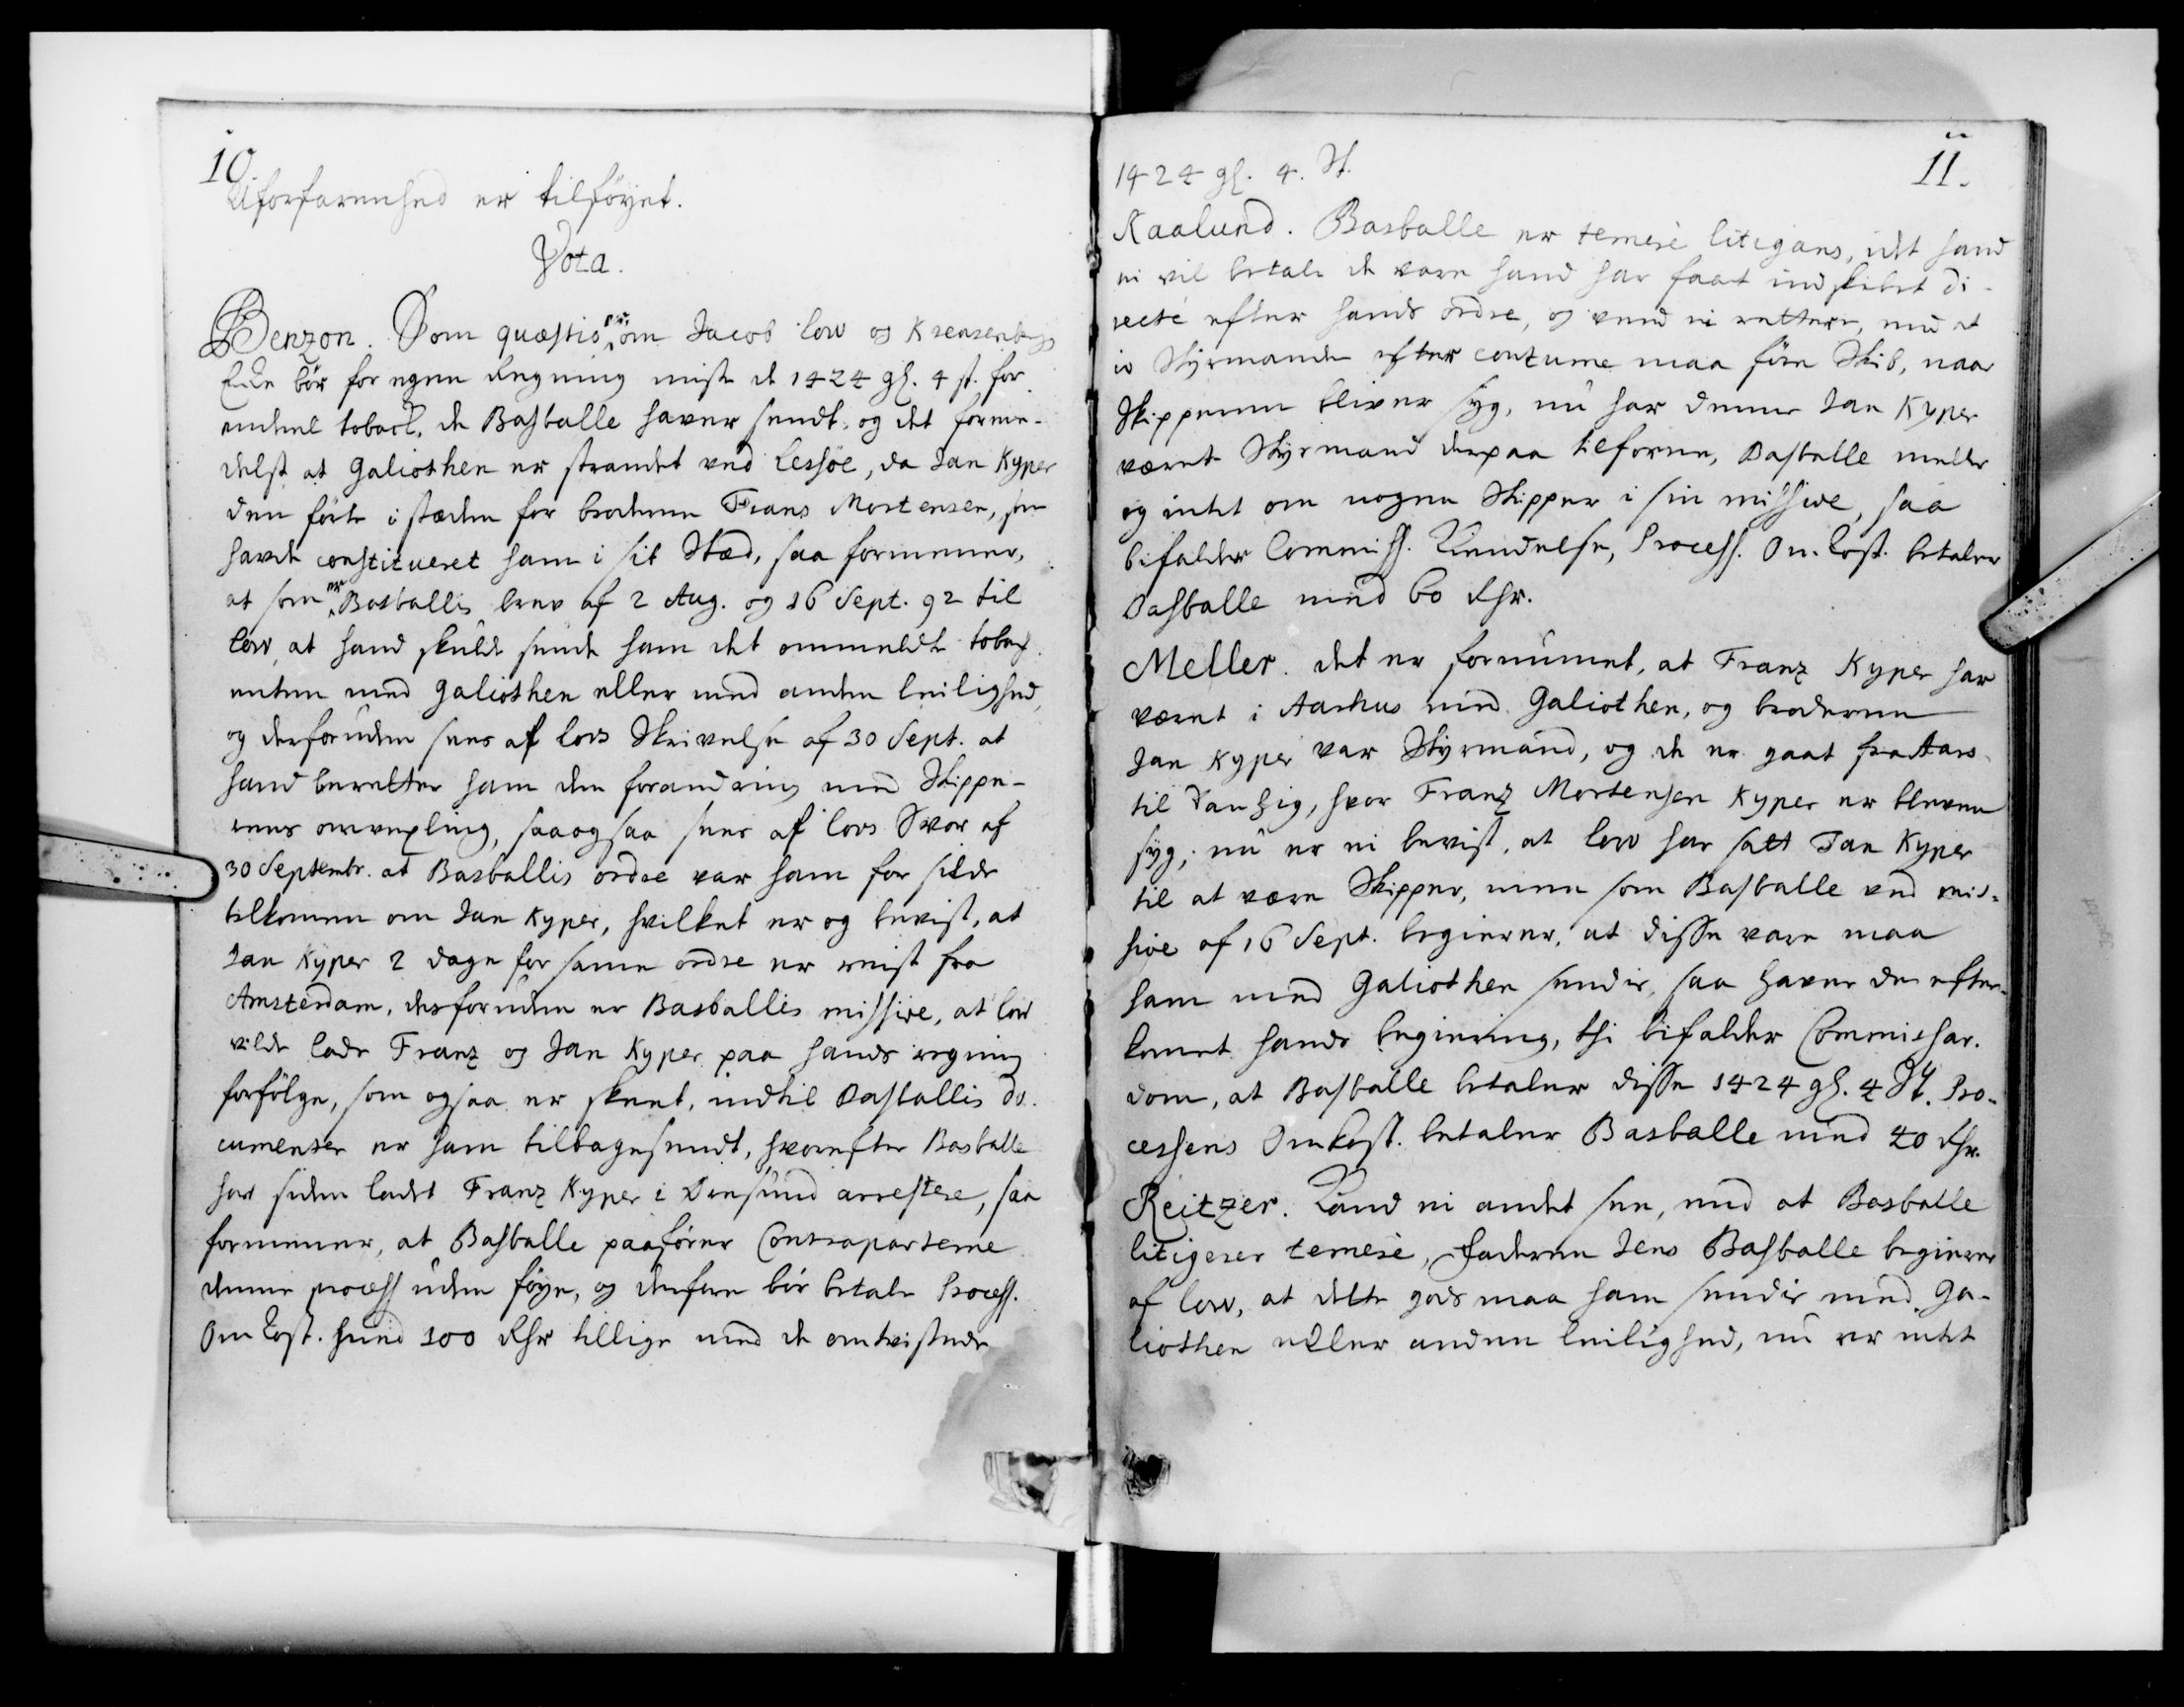 10.
Uforfarenhed er tilföyet.
Vota.
Benzon. Som quæstio er, om Jacob Low og Krensenbergs
bör for egen Regning miste de 1424 gl. 4 st. for
endeel toback, de Basballe haver sendt, og det forme-
delst at Galiothen er strandet ved Lessöe, da Jan Kyper
den förte i stæden for broderen Frans Mortensen, som
havde constitueret ham i sit Stæd, saa formener,
at som er Basballis brev af 2 Aug. og 16 Sept. 92 til
Low, at hand skulde sende ham det ommeldte toback
enten med Galiothen eller med anden leilighed,
og desforuden sees af Lows Skrivelse af 30 Sept. at
hand beretter ham den forandring med Skippe-
rens omvexling, saa og saa sees af Lows Svar af
30 Septembr. at Basballis ordre var ham for silde
tilkommen om Jan Kyper, hvilket er og bevist, at
Jan Kyper 2 dage for samme ordre er reist fra
Amsterdam, desforuden er Basballis missive, at Low
vilde lade Franz og Jan Kyper paa hands regning
forfölge, som ogsaa er skeet, indtil Basballis do-
cumenter er ham tilbagesendt, hvorefter Basballe
har siden ladet Franz Kyper i arrestere, saa
formener, at Basballe paaförer Contraparterne
denne process uden föye, og derfore bör betale Process.
Omkost. med 100 Rdr tillige med de omtvistede
11.
1424 gl. 4. St.
Kaalund. Basballe er temerè litigans, idet hand
ei vil betale de vare hand har faaet indskibet di-
rectè efter hands ordre, og veed ei rettere, end at
jo Styrmanden efter contume maa före Skib, naar
Skipperen bliver syg, nu har denne Jan Kyper
været Styrmand derpaa tilforne, Basballe melder
og intet om nogen Skipper i sin missive, saa
bifalder Commiss. Kiendelse, Process. Omkost. betaler
Basballe med 60 Rdr.
Meller. det er fornummet, at Franz Kyper har
været i Aarhus med Galiothen, og broderen
Jan Kyper var Styrmand, og de er gaaet fra Aars
til Danzig, hvor Franz Mortensen Kyper er bleven
syg, nu er ei bevist, at Low har satt Jan Kyper
til at være Skipper, men som Basballe ved mis-
sive af 16 Sept. begierer, at disse vare maa
ham med Galiothen sendis, saa haver de efter-
kommet hands begiering, thi bifalder Commissar.
dom, at Basballe betaler disse 1424 gl. 4 St. Pro-
cessens Omkost. betaler Basballe med 40 Rdr.
Reitzer. Kand ei andet see, end at Basballe
litigerer temerè, Faderen Jens Basballe begierer
af Low, at dette gods maa ham sendis med Ga-
liothen eller anden leilighed, nu er intet